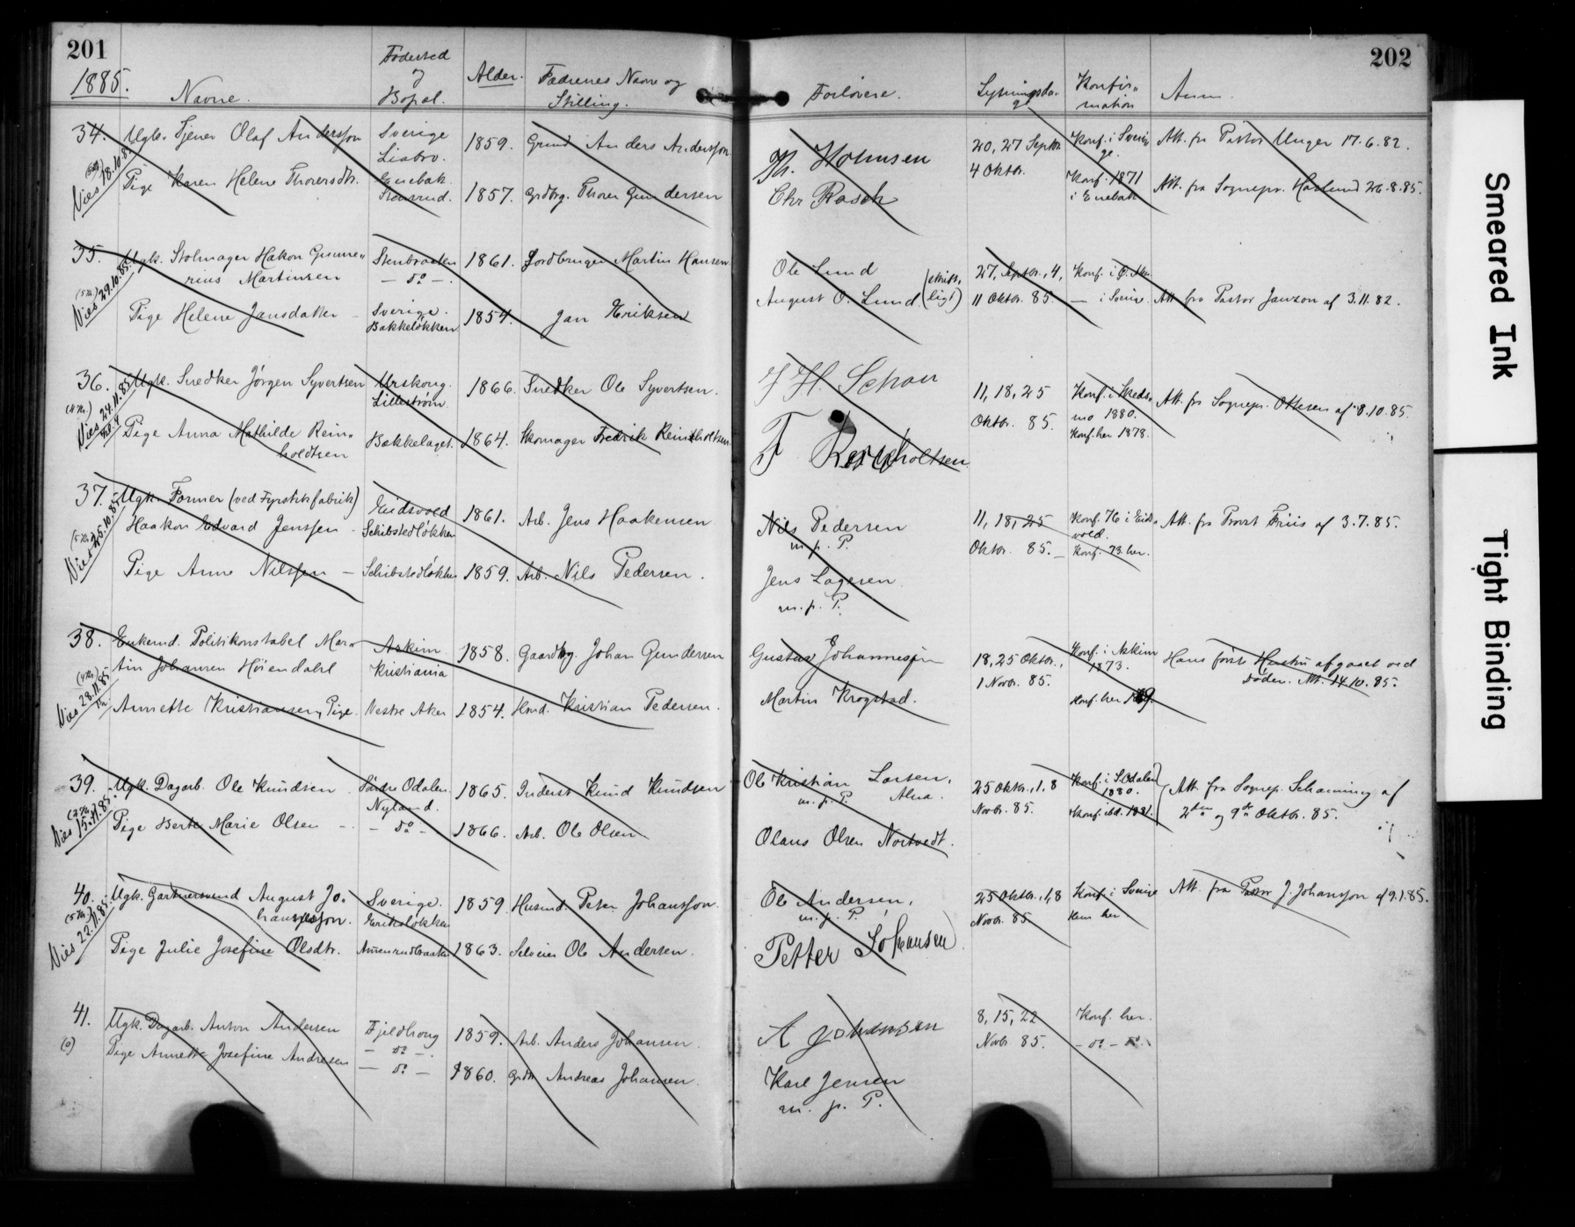 201
1885.
Navne.
Fødested
og
Bopæl.
Alder.
Fædrenes Navn og
Stilling.
34.
Viet 18.10.85
Ugk. Tjener Olaf Andersson
Sverige
1859.
Anders Andersson
Pige Karen Helene Thorersdtr.
Enebak.
1857.
Grdbrg. Thorer Gundersen
35.
Viet 29.10.85
Ugk. Stolmager Hakon Gunne-
rius Martinsen
Stenbraaten
— do —
1861.
Jordbruger Martin Hansen
Pige Helene Jansdatter
Sverige.
Bakkeløkken
1854.
Jan Eriksen
36.
Viet 24.11.85
Ugk. Snedker Jørgen Syvertsen
Urskoug.
Lillestrøm
1866.
Snedker Ole Syvertsen.
Pige Anna Mathilde Rein-
holdtsen
Bakkelaget.
1864.
Skomager Fredrik Reinholtsen
37.
Viet 25.10.85
Ugk. Former (ved Fyrstikfabrik)
Haakon Edvard Jenssen
Eidsvold
Schibstedløkken
1861.
Arb. Jens Haakensen
Pige Anne Nilssen —
Schibstedløkken
1859.
Arb. Nils Pedersen.
38.
Viet 28.11.85
Enkemd. Politikonstabel Mar-
tin Johansen Høiendahl
Askim
Kristiania
1858.
Gaardbg. Johan Gundersen
Annette Kristiansen, Pige.
Vestre Aker
1854.
Hmd. Kristian Pedersen.
39.
Viet 15.11.85
Ugk. Dagarb. Ole Knudsen
Søndre Odalen
Nyland.
1865.
Inderst Knud Knudsen
Pige Berte Marie Olsen —
— do —
1866.
Arb. Ole Olsen
40.
Viet 22.11.85
Ugk. Gartnersvend August Jo-
hannesson.
Sverige.
Eriksløkken
1859
Husmd. Peter Johansson
Pige Julie Josefine Olsdtr.
1863.
Selveier Ole Andersen.
41.
(0)
Ugk. Dagarb. Anton Andersen
Fjeldhoug
— do —
1859.
Arb. Anders Johansen.
Pige Annette Josefine Andresen
— do —
1860.
Andreas Johansen.
202
Forlovere.
Lysningsda-
ge
Konfir-
mation
Anm.
Th. Holmsen
Chr Rasch
20, 27 Septbr
4 Oktbr.
Konf. i Sveri-
ge.
Konf. 1871
i Enebak
Att. fra Pastor Unger 17.6.82.
Att. fra Sognepr. Haslund 26.8.85.
Ole Lund
August O. Lund (skrift-
ligt)
27, Septbr., 4,
11 Oktbr. 85.
— i Sverige
Att. fra Pastor Janzon af 3.11.82.
11, 18, 25
Oktbr. 85.
Konf. i Skeds-
mo 1880.
Konf. her 1878.
Att. fra Sognepr. Ottesen af 8.10.85.
F Reinholtsen
Nils Pedersen
m. p. P.
Jens Lagesen
m. p. P.
11, 18, 25
Oktbr. 85.—
Konf. 76 i Eids-
vold.
Konf. 73 her.
Att. fra Provst Friis af 3.7.85.
Gustav Johannesen
Martin Krogstad.
18, 25 Oktbr.,
1 Novbr. 85.
Konf. i Askim
1873.
Konf. her
Hans første Hustru afgaaet ved
Døden. Att. 14.10.85.
Ole Kristian Larsen,
m. p. P. Alna.
Olaus Olsen Nortvedt.
25 Oktbr., 1, 8
Novbr. 85.
Konf. i S. Odalen
1880.
Konf. ibd. 1881.
Att. fra Sognepr. Schanning af
2den og 9de Oktbr. 85.
Ole Andersen,
m. p. P.
Petter Johansen
25 Oktbr., 1, 8
Novbr. 85
Konf. i Sverige
Hun her
Att. fra Pastor J. Johansson af 9.1.85.
A Johansen
Karl Jensen
m. p. P.
8, 15, 22
Novbr. 85.
Konf. her.
— do — do
Smeared Ink
Tight Binding